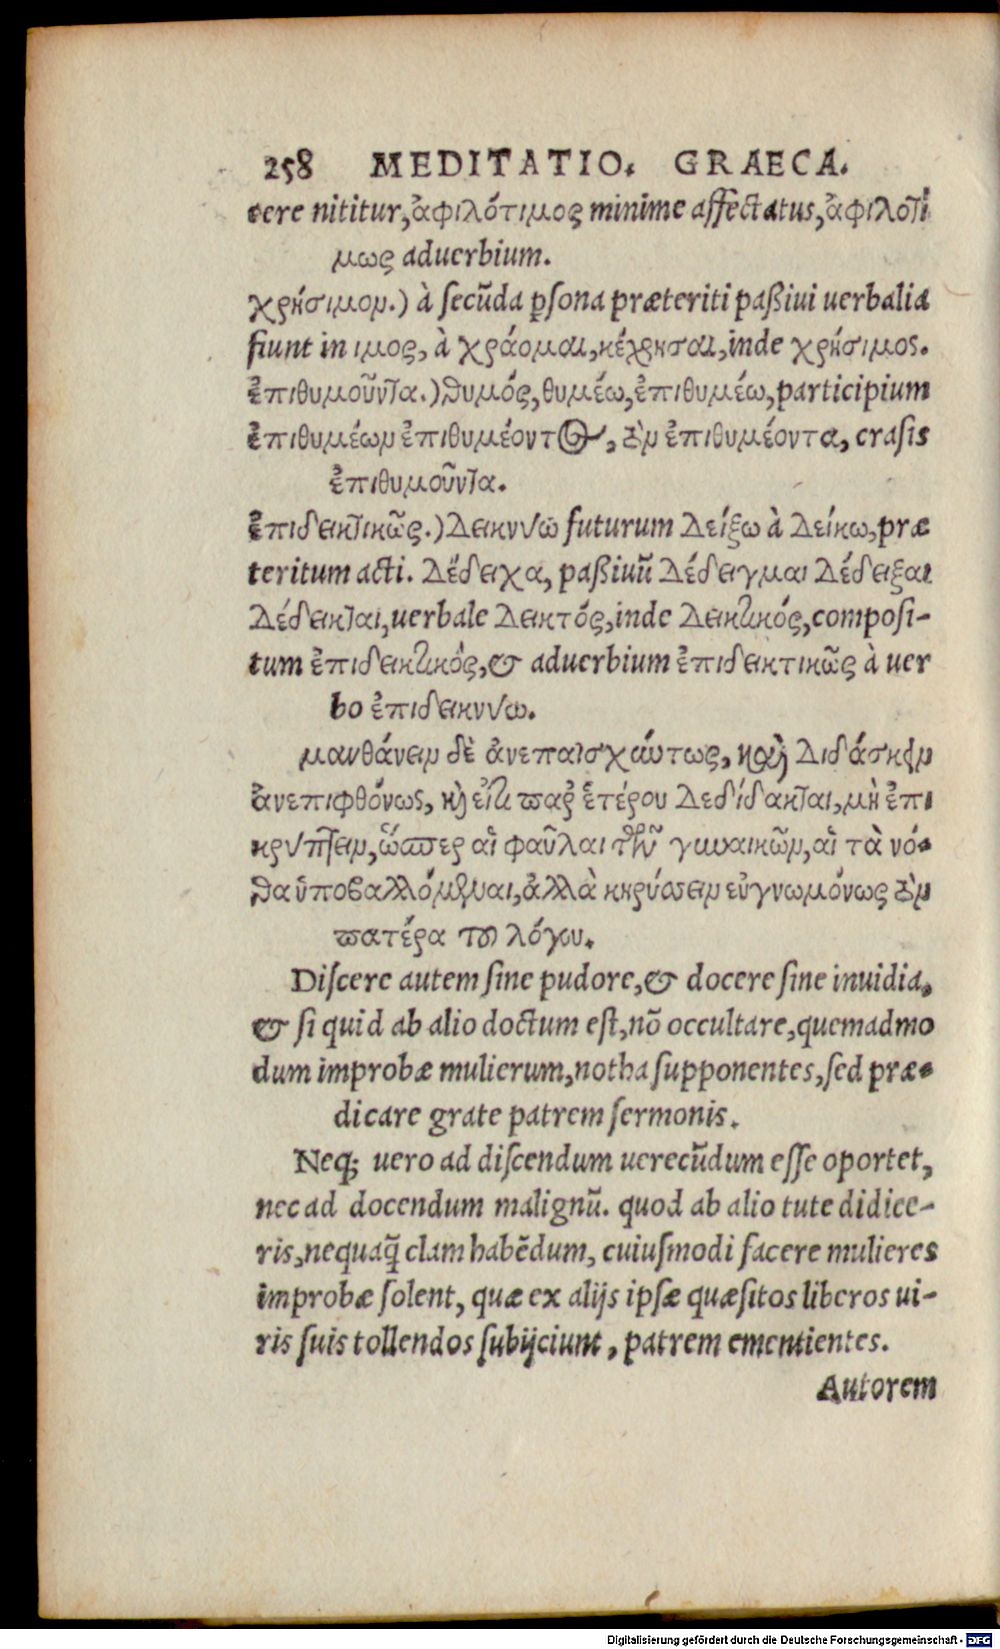 258 MEDITATIO. GRAECA.
cere nititur, ἀφιλότιμος minime affectatus, ἀφιλοτί
μως aduerbium.
χρήσιμον.) à secūda ꝑsona præteriti paßiui uerbalia
fiunt in ιμος, à χράομαι, κέχρησαι, inde χρήσιμος.
ἐπιθυμοῦντα.) θυμός, θυμέω, ἐπιθυμέω, participium
ἐπιθυμέων ἐπιθυμέοντος, τὸν ἐπιθυμέοντα, crasis
ἐπιθυμοῦντα.
ἐπιδεικτικῶς.) Δεικνύω futurum Δείξω à Δείκω, præ
teritum acti. Δέδειχα, paßiuū Δέδειγμαι Δέδειξαι
Δέδεικται, uerbale Δεικτός, inde Δεικτικός, composi-
tum ἐπιδεικτικός, & aduerbium ἐπιδεικτικῶς à uer
bo ἐπιδεικνύω.
μανθάνειν δὲ ἀνεπαισχύντως, καὶ Διδάσκειν
ἀνεπιφθόνως, κὴ εἴ τι παρ' ἑτέρου Δεδίδακται, μὴ ἐπι
κρύπτειν, ὥσπερ αἱ φαῦλαι τῶν γυναικῶν, αἱ τὰ νό-
θα ὑποβαλλόμεναι, ἀλλὰ κηρύσσειν εὐγνωμόνως τὸν
πατέρα τοῦ λόγου.
Discere autem sine pudore, & docere sine inuidia,
& si quid ab alio doctum est, nō occultare, quemadmo
dum improbæ mulierum, notha supponentes, sed præ-
dicare grate patrem sermonis.
Neq; uero ad discendum uerecūdum esse oportet,
nec ad docendum malignū. quod ab alio tute didice-
ris, nequaq̃ clam habēdum, cuiusmodi facere mulieres
improbæ solent, quæ ex alijs ipsæ quæsitos liberos ui-
ris suis tollendos subijciunt, patrem ementientes.
Autorem
Digitalisierung gefördert durch die Deutsche Forschungsgemeinschaft - DFG